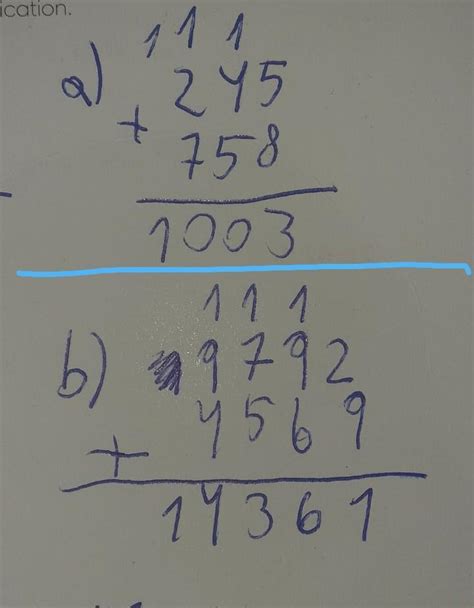 ication.
1 1 1
a) 245
+ 758
1003
1 1 1
b) 9792
+ 4569
14361